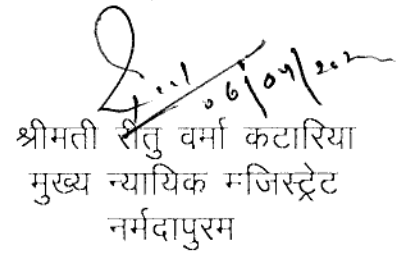 श्रीमती रीतु वर्मा कटारिया
मुख्य न्यायिक मजिस्ट्रेट
नर्मदापुरम